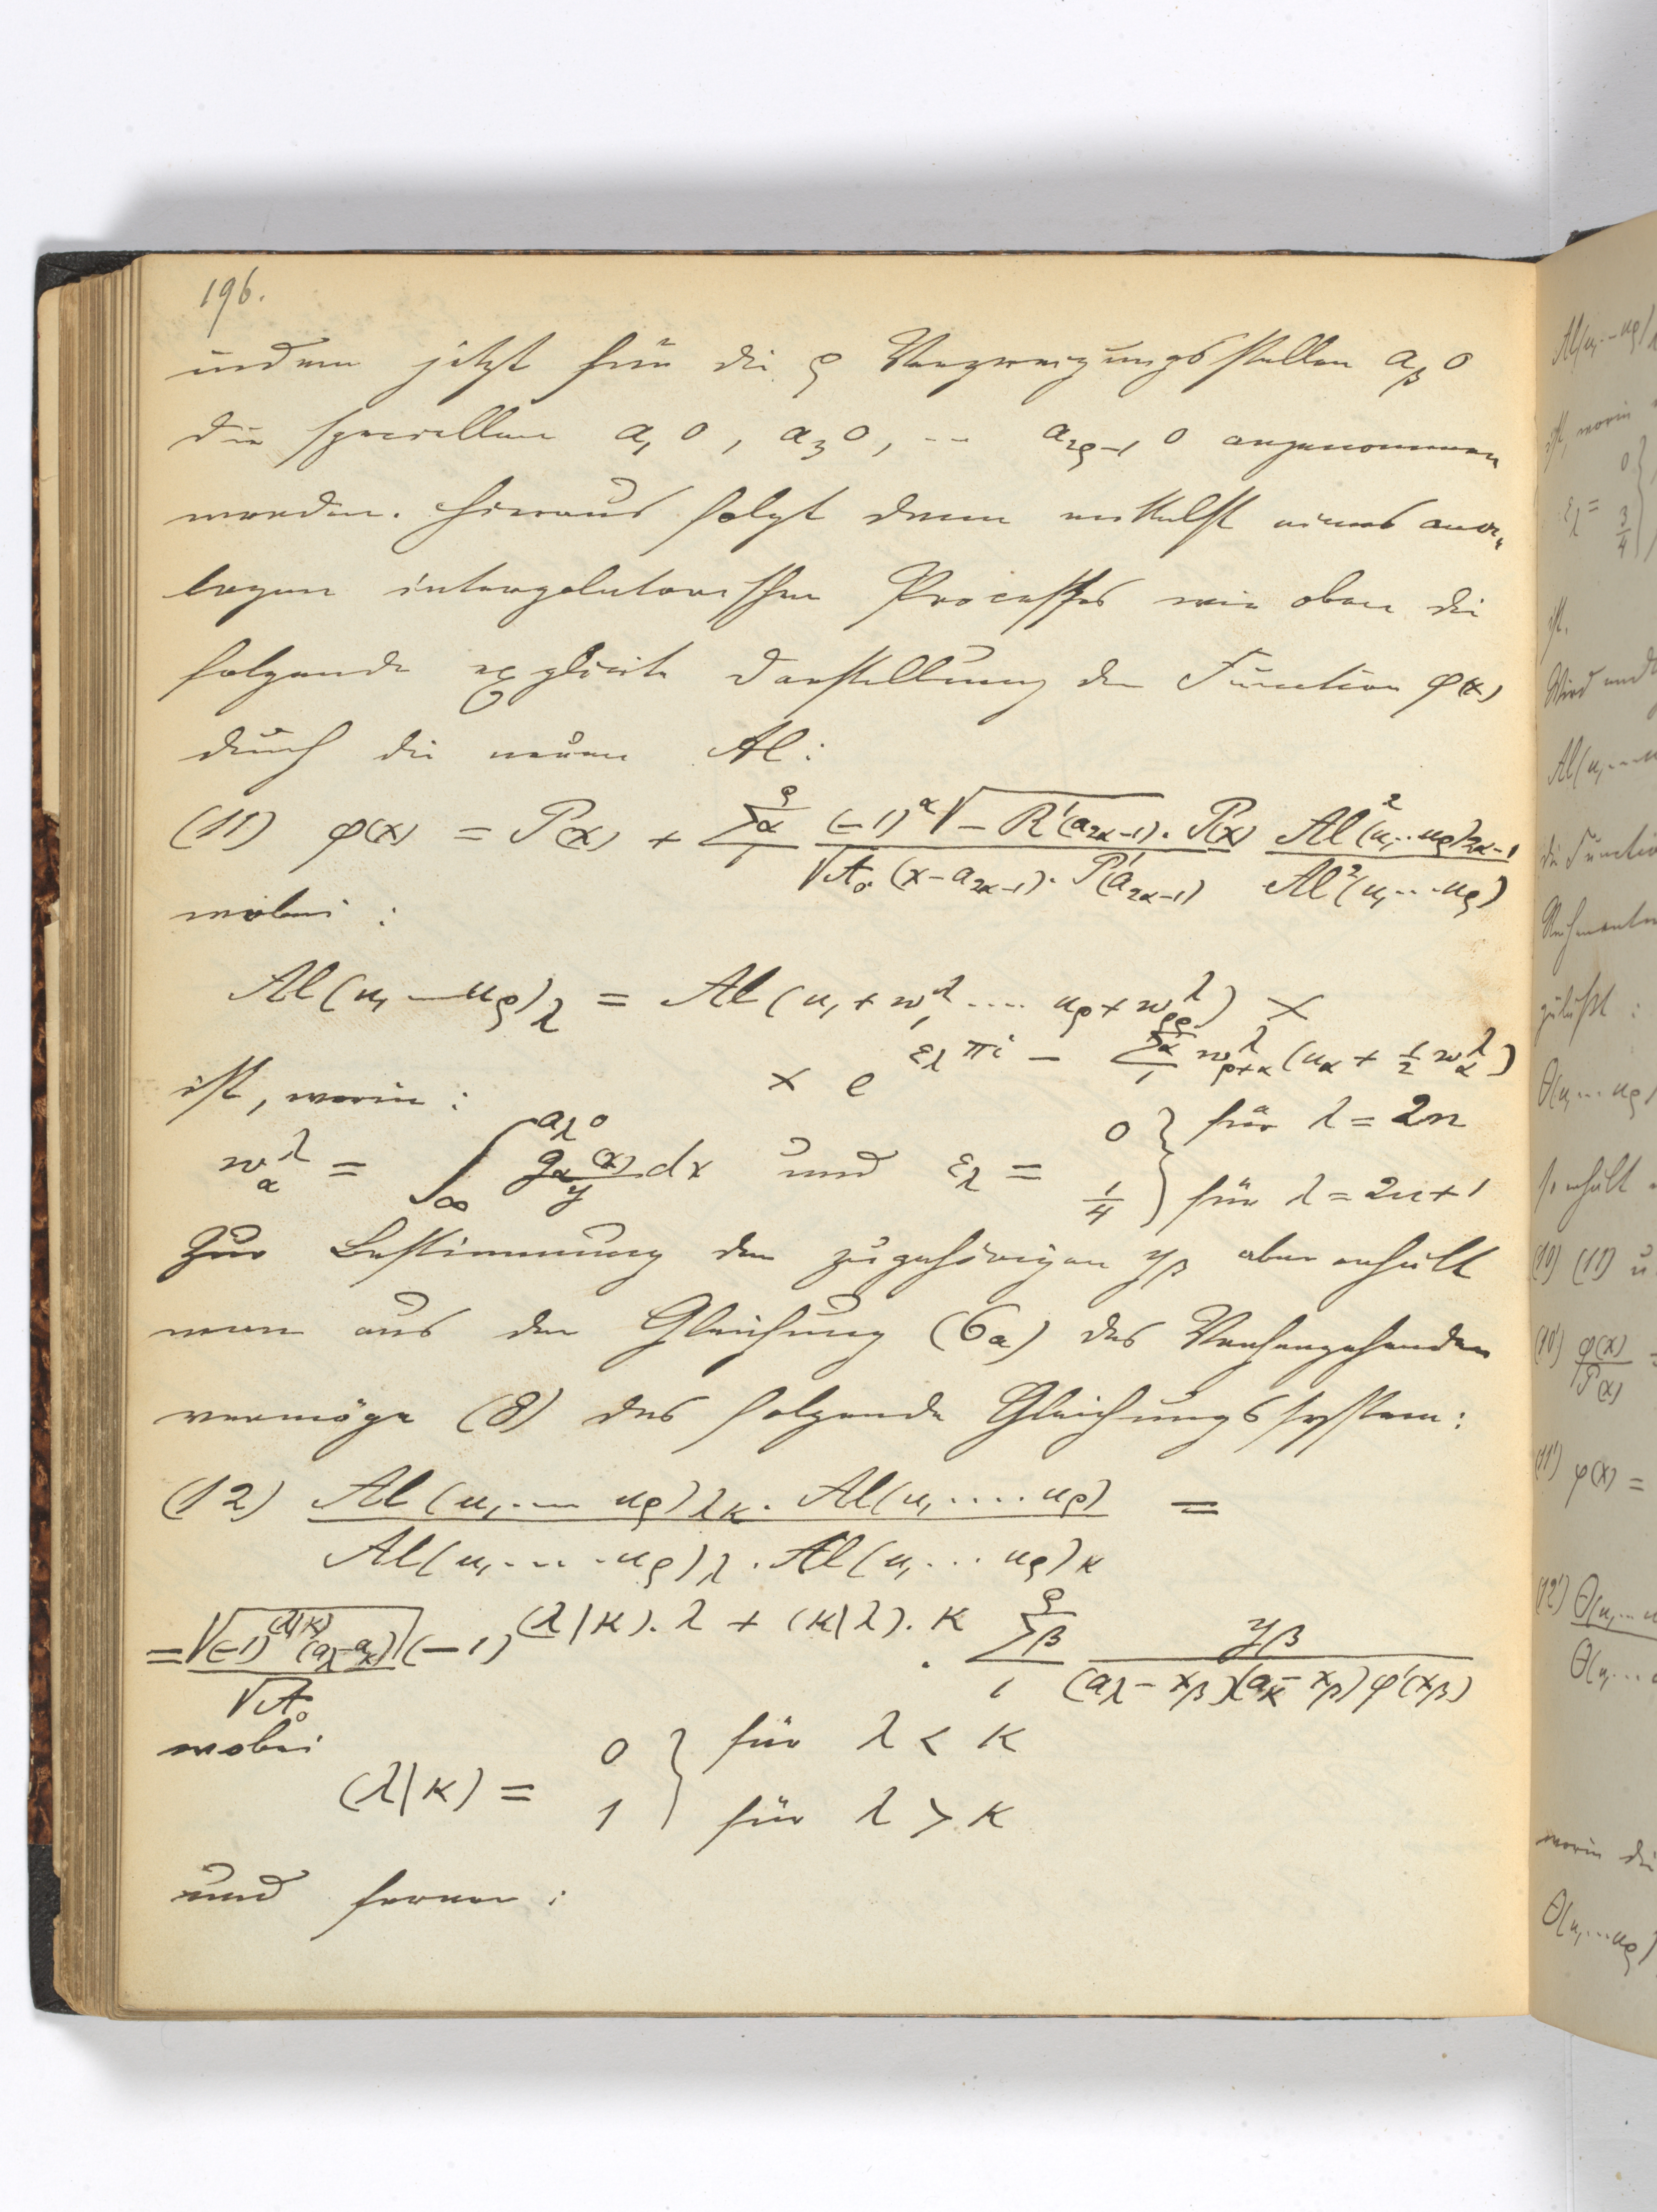 196.
indem jetzt für die ρ Verzweigungsstellen a_β 0
die speciellen a_1 0, a_3 0, -- a_{2ρ-1} 0 angenommen
werden. Hieraus folgt dann mittelst eines ana„
logen interpolatorischen Processes wie oben die
folgende explicite Darstellung der Function φ(x)
durch die neuen Al:
(11) φ(x) = P(x) + \sum_{1}^{ρ}{}_α \frac{(-1)^α \sqrt{-R'(a_{2α-1})} . P(x)}{\sqrt{A_0} (x-a_{2α-1}) . P'(a_{2α-1})} \frac{Al^2(u_1 .. u_ρ)_{2α-1}}{Al^2(u_1 ... u_ρ)}
wobei :
Al(u_1 ... u_ρ)_λ = Al(u_1 + w_1^λ .... u_ρ + w_ρ^λ) ×
× e^{ε_λ πi - \sum_{1}^{ρ}{}_α w_{ρ+α}^λ (u_α + \frac{1}{2} w_α^λ)}
ist, worin :
w_α^λ = \int_{∞}^{a_λ 0} \frac{g_α(x)}{y} dx und ε_λ = 0 } für λ = 2n
\frac{1}{4} } für λ = 2n+1
Zur Bestimmung der zugehörigen y_β aber erhält
man aus der Gleichung (6a) des Vorhergehenden
vermöge (8) das folgende Gleichungssystem:
(12) \frac{Al(u_1 .... u_ρ)_{λκ} . Al(u_1 ..... u_ρ)}{Al(u_1 .... u_ρ)_λ . Al(u_1 ... u_ρ)_κ} =
= \frac{\sqrt{(-1)^{(λ|κ)} (a_λ - a_κ)}}{\sqrt{A_0}} (-1)^{(λ|κ) . λ + (κ|λ) . κ} . \sum_{1}^{ρ}{}_β \frac{y_β}{(a_λ - x_β)(a_κ - x_β) φ'(x_β)}
wobei
(λ|κ) = 0 } für λ < κ
1 } für λ > κ
und ferner :